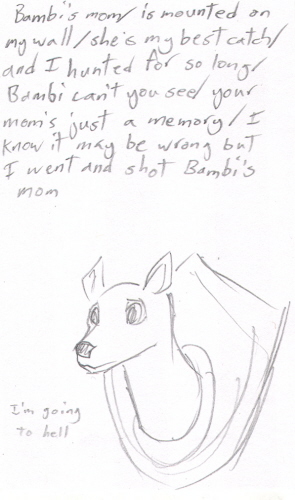 Bambi's mom/ is mounted on
my wall/ she's my best catch/
and I hunted for so long/
Bambi can't you see/ your
mom's just a memory/ I
know it may be wrong but
I went and shot Bambi's
mom
I'm going
to hell